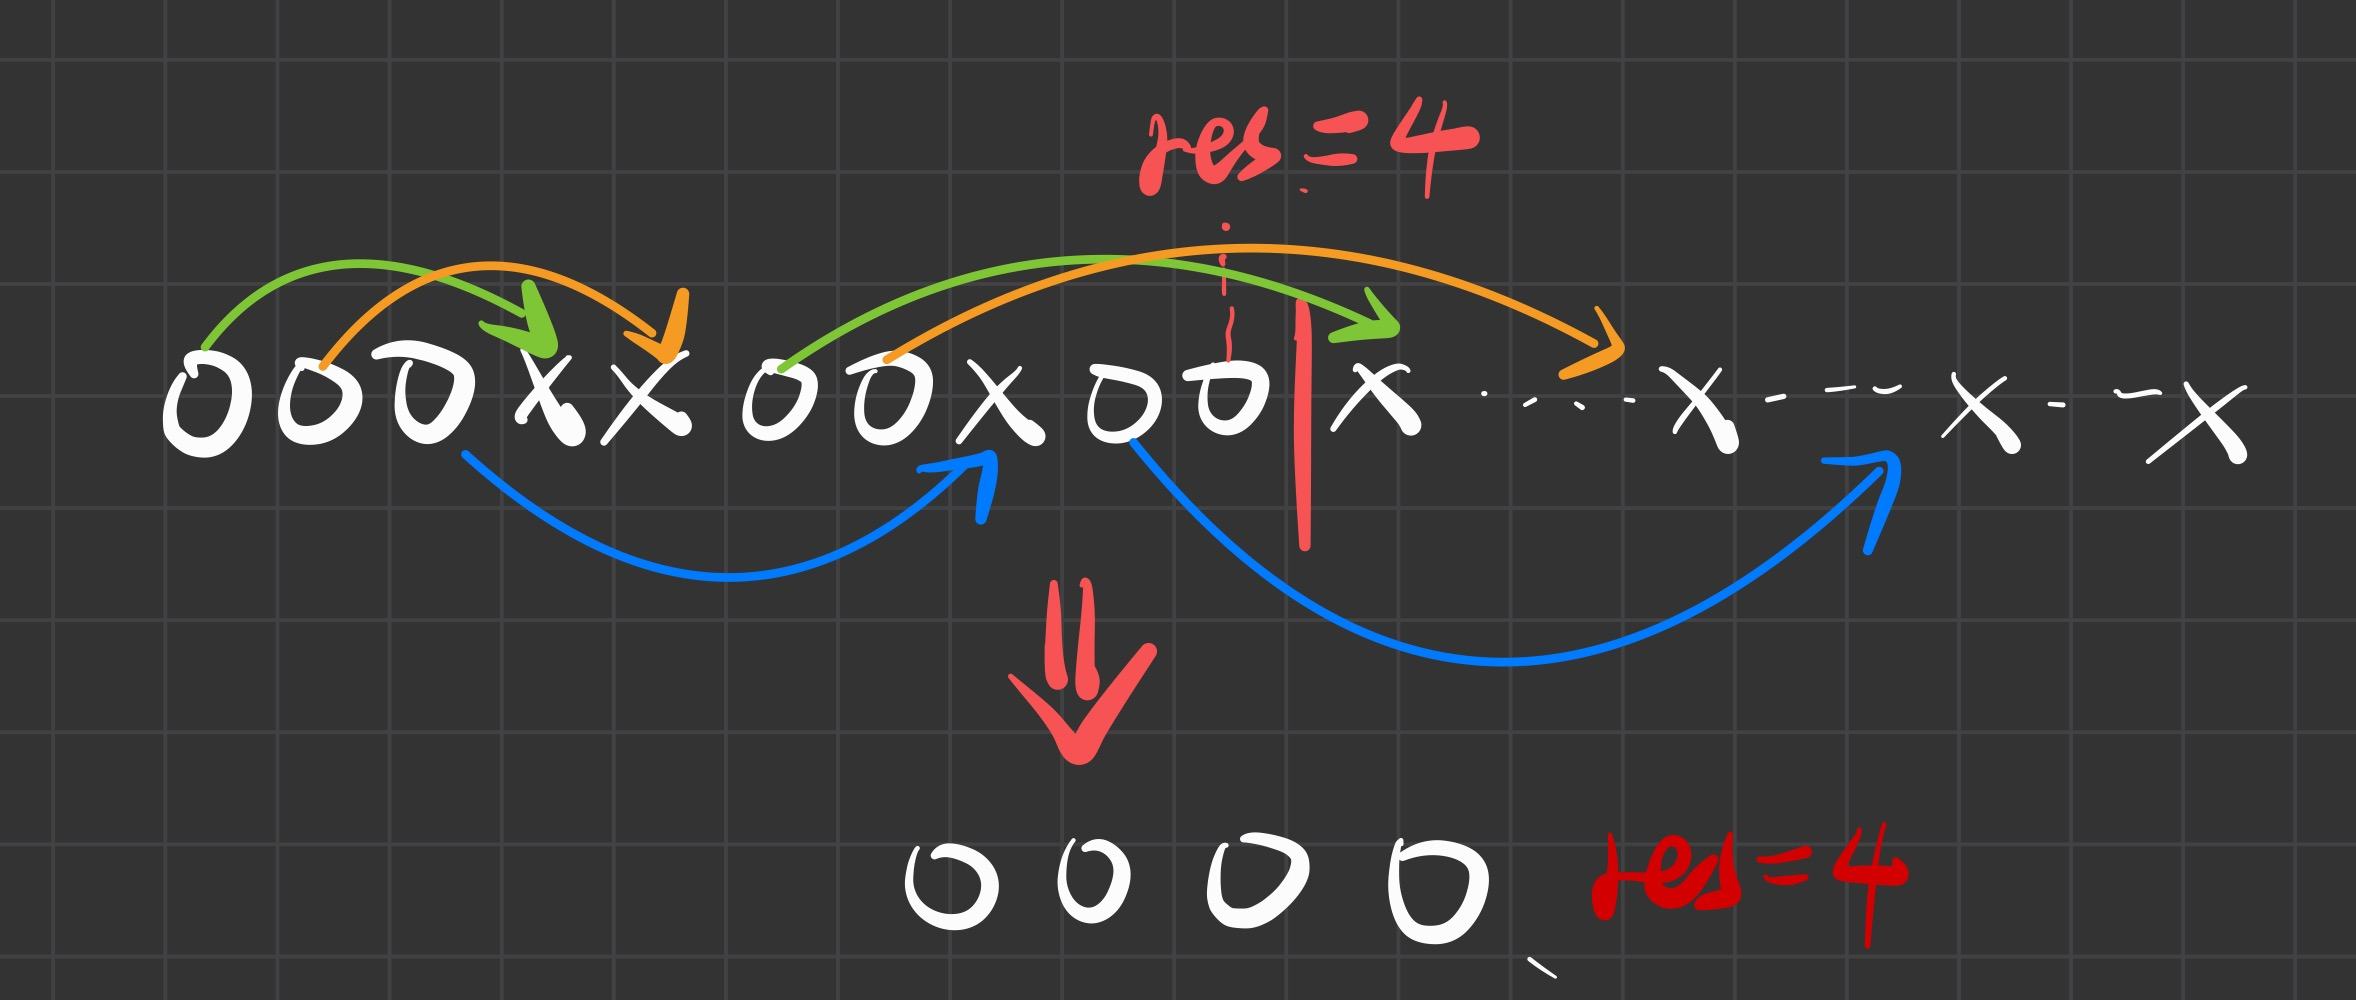 res = 4
O O O X X O O X O O | X - - - - X - - - X - - X
O O O O res = 4